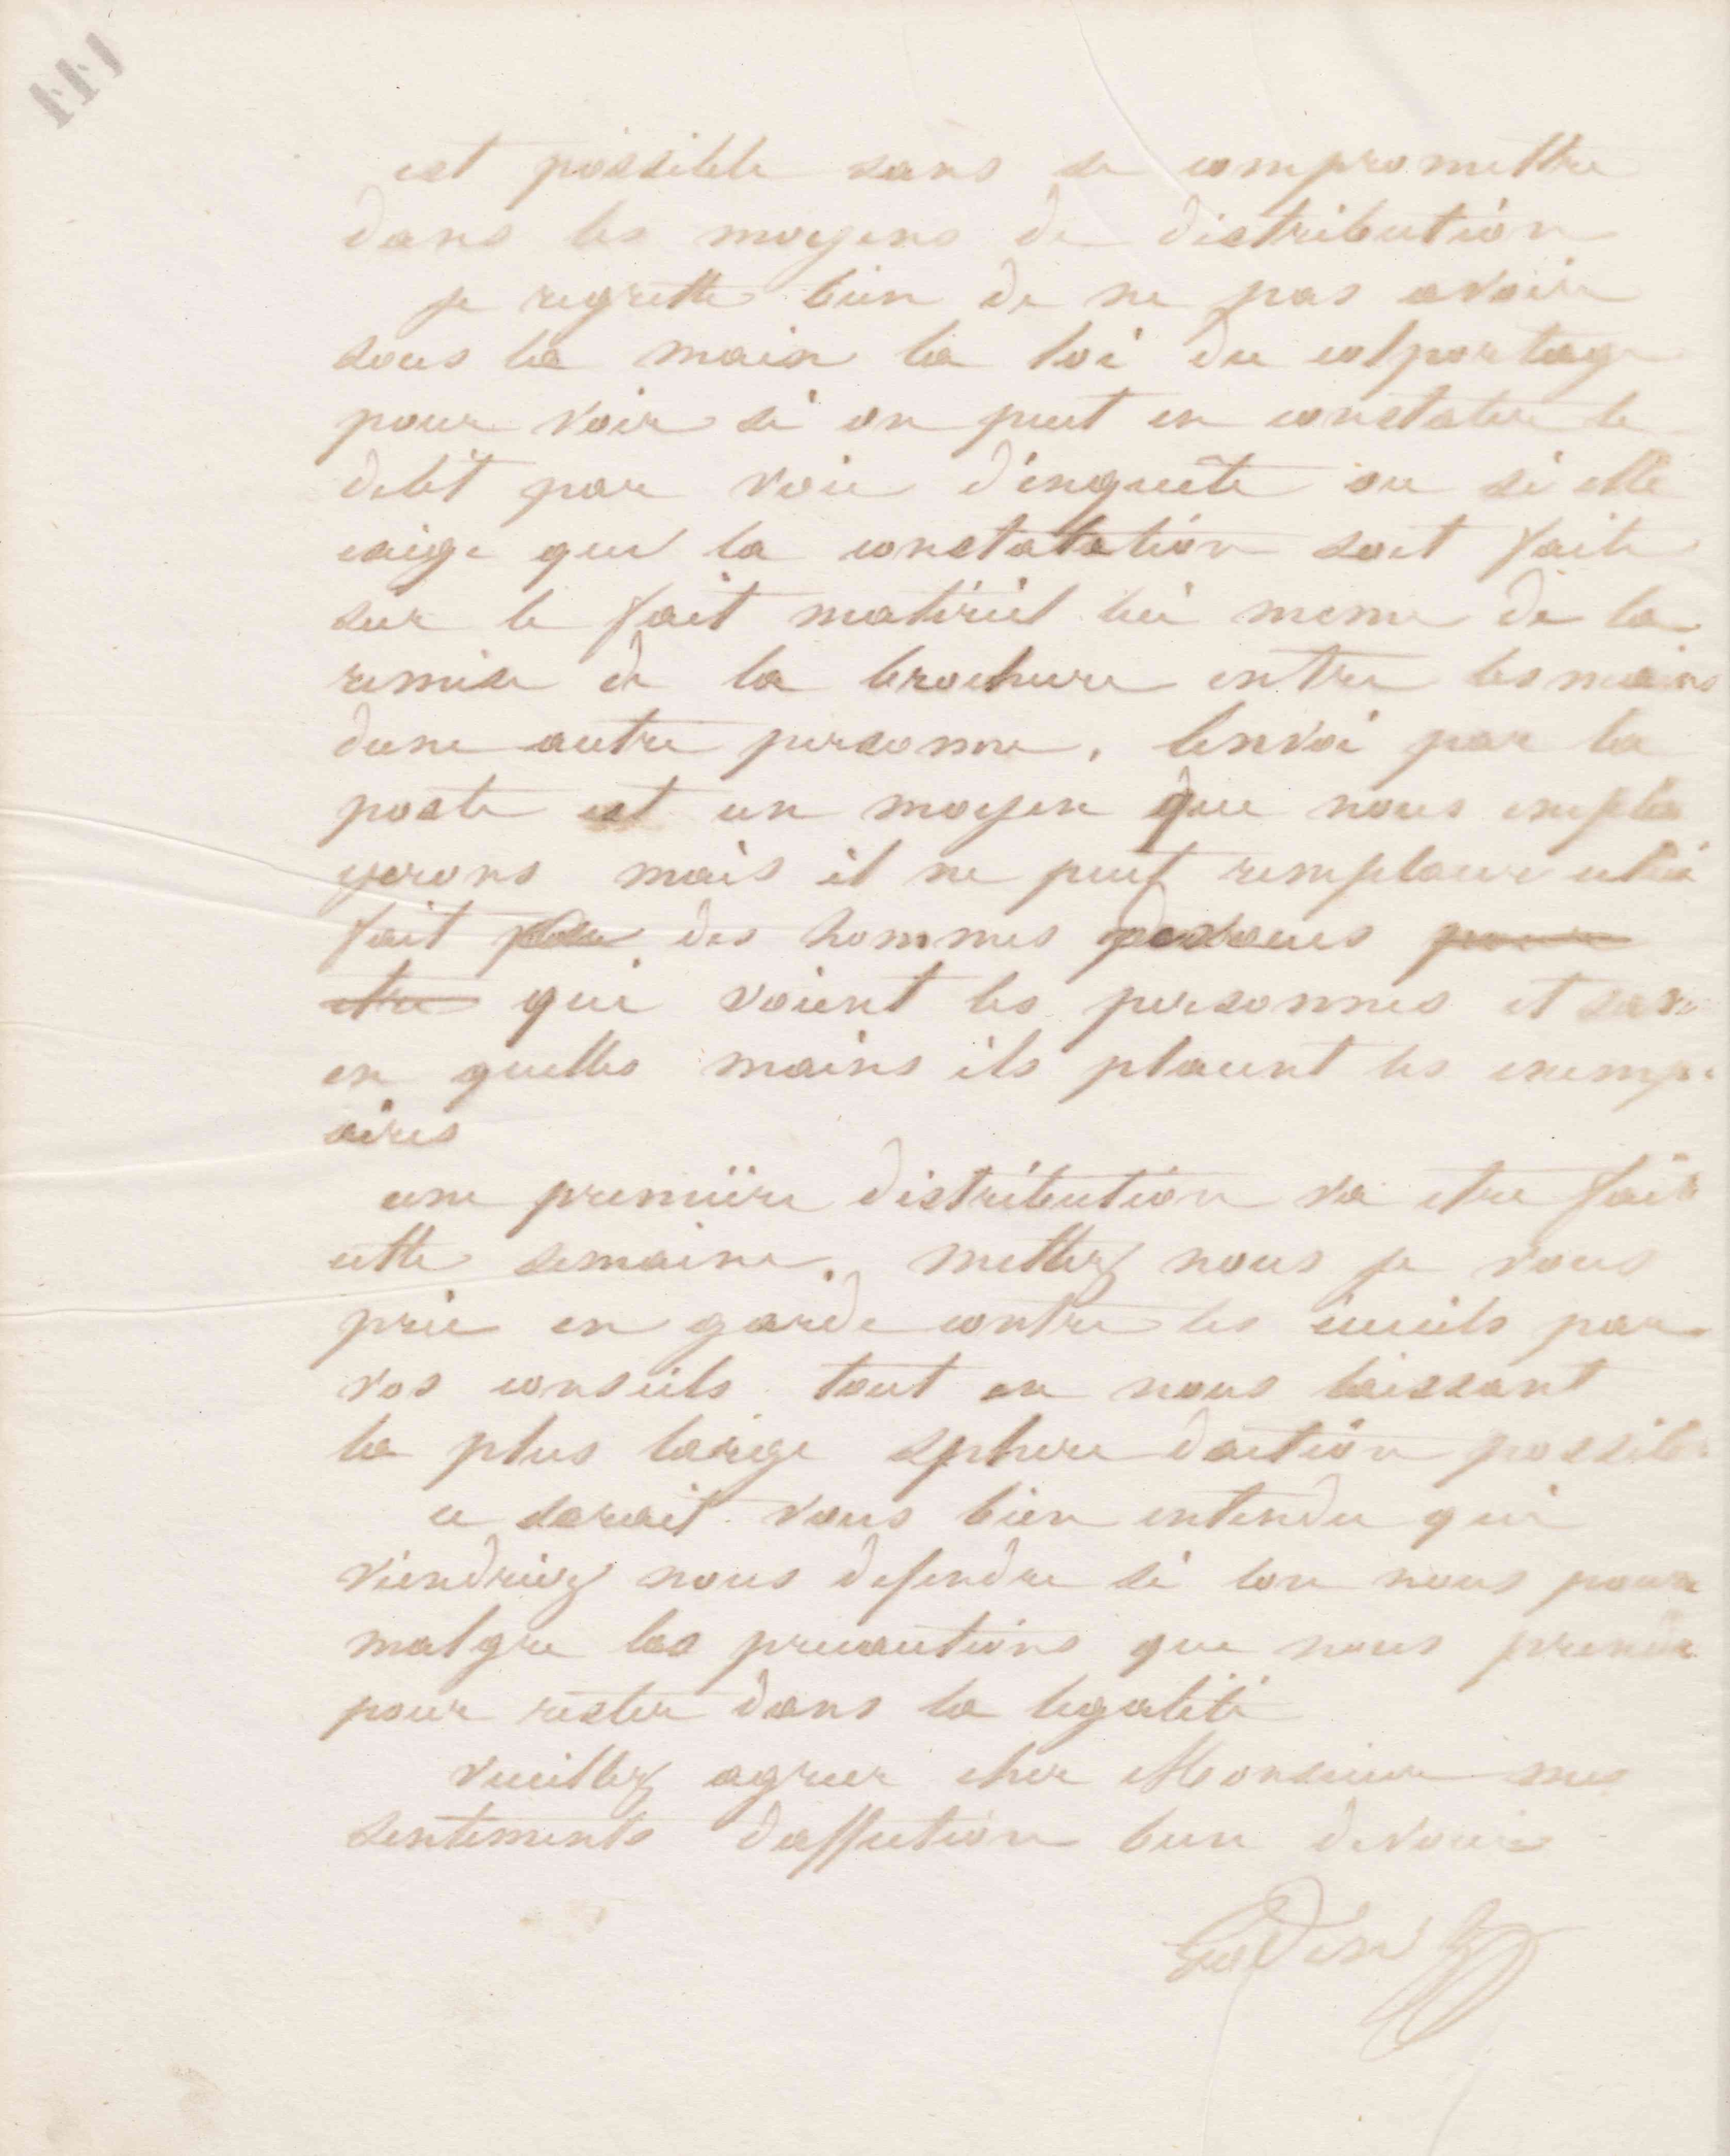 est possible sans se compromettre
dans les moyens de distribution
je regrette bien de ne pas avoir
sous la main la loi du colportage
pour voir si on peut en constater le
delit par voie d'enquete ou si elle
exige que la constatation soit faite
sur le fait matériel lui meme de la
remise de la brochure entre les mains
dune autre personne. lenvoi par la
poste est un moyen que nous emplo
yerons mais il ne peut remplacer
fait des hommes devoues pour
etre qui voient les personnes et
en quelles mains ils placent les exempl
aires
une première distribution va etre faite
cette semaine. mettez nous je vous
prie en garde contre les écueils par
vos conseils tout en nous laissant
la plus large sphere daction possible
ce serait vous bien entendu qui
viendriez nous defendre si lon nous
malgre les precautions que nous
pour rester dans la legalité
veuillez agreer cher Monsieur mes
sentiments daffection bien devoués
Godin